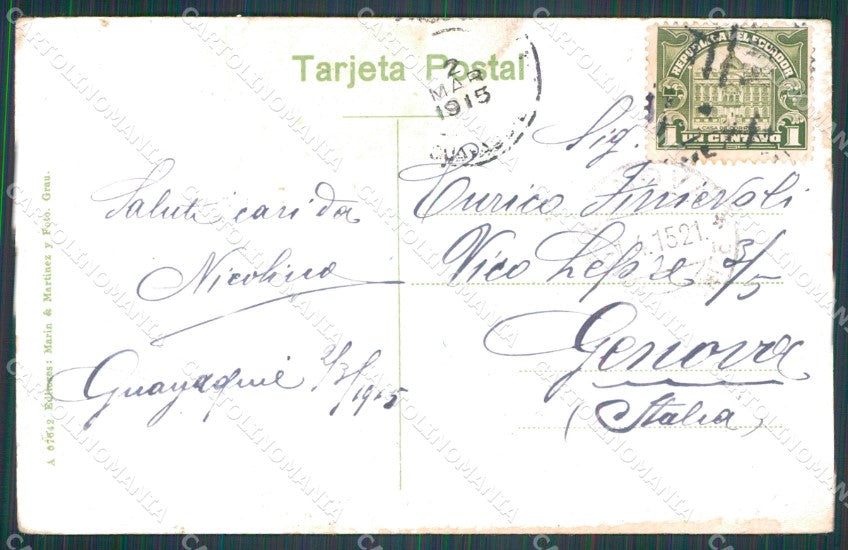 Tarjeta Postal
2
MAR
1915
REPUBLICA DEL ECUADOR
1 UN CENTAVO 1
Saluti cari da
Nicolino
Guayaquil 2/3/1915
Sig.
Enrico
Vico Lepre 3/5
Genova
(Italia)
4.1521.
A 67642 Editores: Marin & Martinez y Foto. Grau.
CARTOLINOMANIA